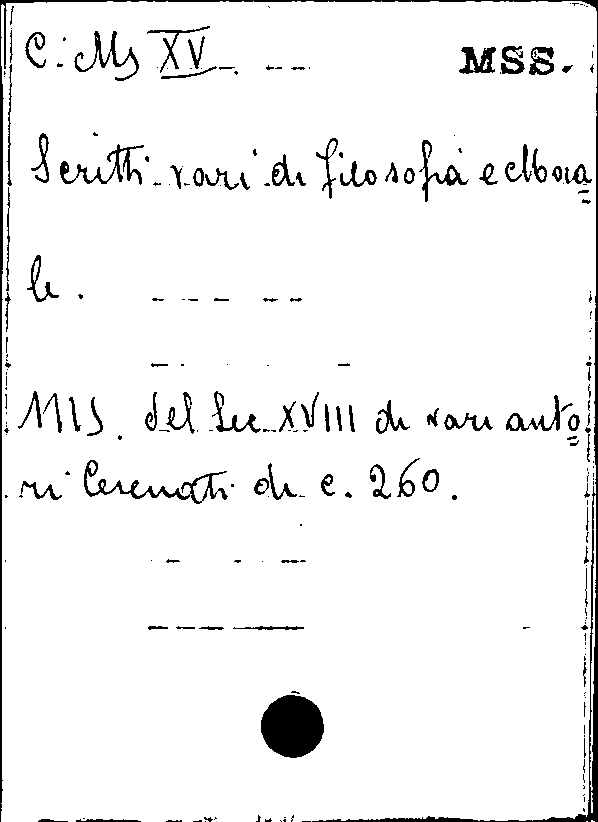 C. Ms XV MSS.
Scritti vari di filosofia e Mora=
le.
MIS. del Sec XVIII di vari auto=
ri Cesenati di c. 260.